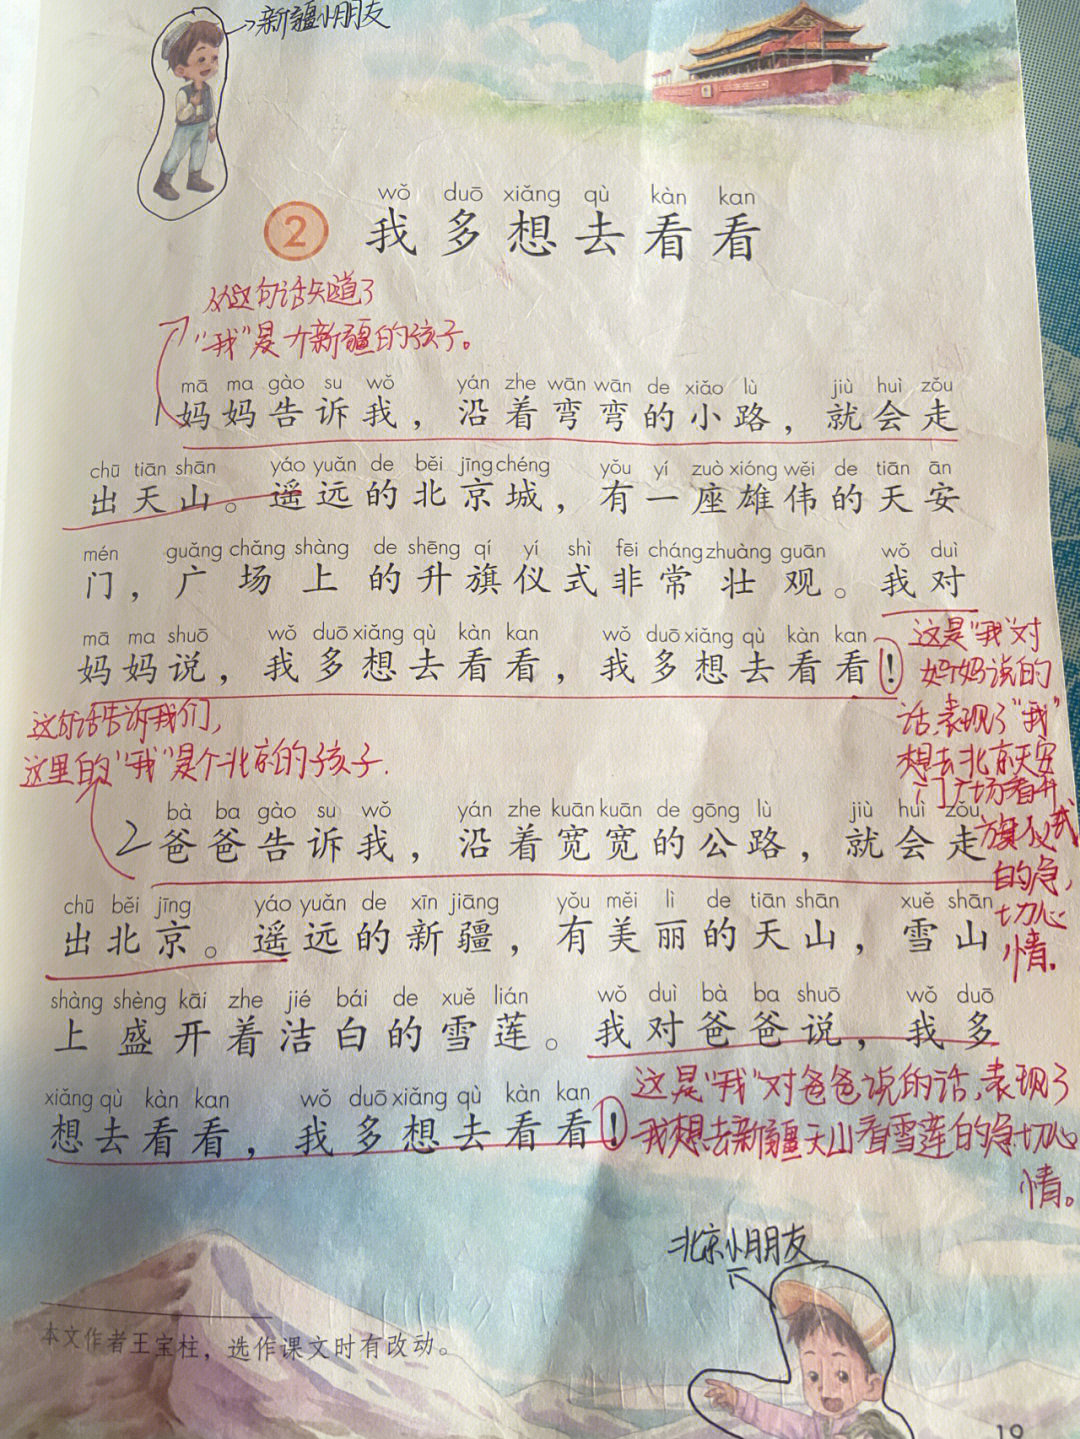 新疆小朋友
wǒ duō xiǎng qù kàn kan
2 我多想去看看
从这句话知道了
“我”是个新疆的孩子。
mā ma gào su wǒ yán zhe wān wān de xiǎo lù jiù huì zǒu
1 妈妈告诉我，沿着弯弯的小路，就会走
chū tiān shān yáo yuǎn de běi jīng chéng yǒu yí zuò xióng wěi de tiān ān
出天山。遥远的北京城，有一座雄伟的天安
mén guǎng chǎng shàng de shēng qí yí shì fēi cháng zhuàng guān wǒ duì
门，广场上的升旗仪式非常壮观。我对
mā ma shuō wǒ duō xiǎng qù kàn kan wǒ duō xiǎng qù kàn kan
妈妈说，我多想去看看，我多想去看看！
这是“我”对
妈妈说的
话，表现了“我”
想去北京天安
门广场看升
旗仪式
的急
切心
情。
这句话告诉我们，
这里的“我”是个北京的孩子.
bà ba gào su wǒ yán zhe kuān kuān de gōng lù jiù huì zǒu
2 爸爸告诉我，沿着宽宽的公路，就会走
chū běi jīng yáo yuǎn de xīn jiāng yǒu měi lì de tiān shān xuě shān
出北京。遥远的新疆，有美丽的天山，雪山
shàng shèng kāi zhe jié bái de xuě lián wǒ duì bà ba shuō wǒ duō
上盛开着洁白的雪莲。我对爸爸说，我多
xiǎng qù kàn kan wǒ duō xiǎng qù kàn kan
想去看看，我多想去看看！
这是“我”对爸爸说的话，表现了
我想去新疆天山看雪莲的急切心
情。
北京小朋友
本文作者王宝柱，选作课文时有改动。
19